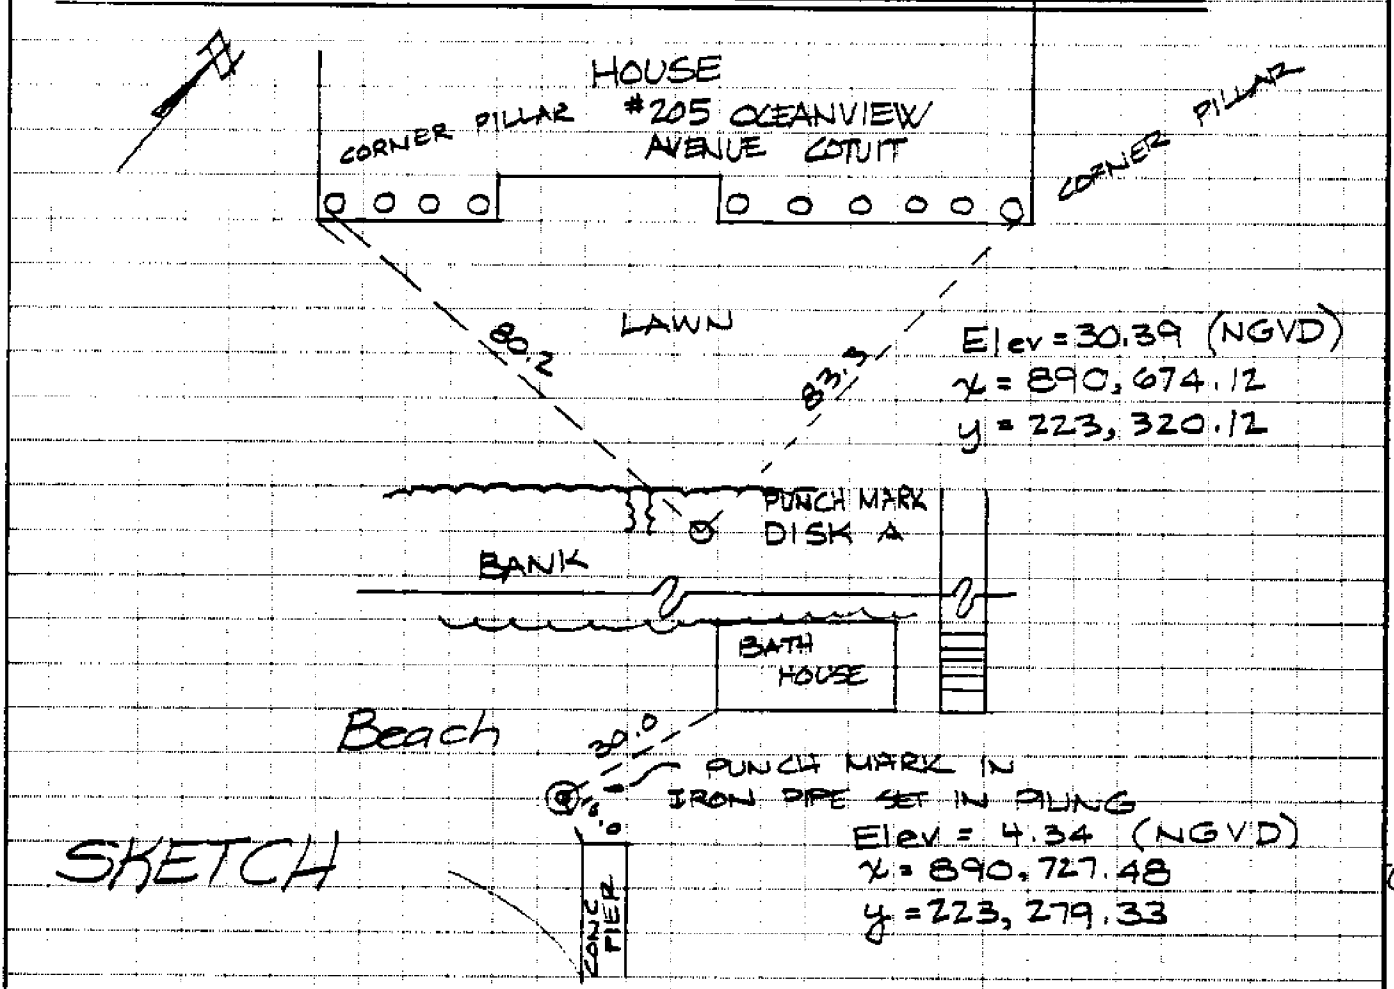 HOUSE
#205 OCEANVIEW
AVENUE COTUIT
CORNER PILLAR
CORNER PILLAR
LAWN
80.2
83.3
Elev = 30.39 (NGVD)
x = 890,674.12
y = 223,320.12
PUNCH MARK
DISK A
BANK
BATH
HOUSE
Beach
30.0
PUNCH MARK IN
IRON PIPE SET IN PILING
6.0
Elev = 4.34 (NGVD)
x = 890,727.48
y = 223,279.33
SKETCH
CONC
PIER